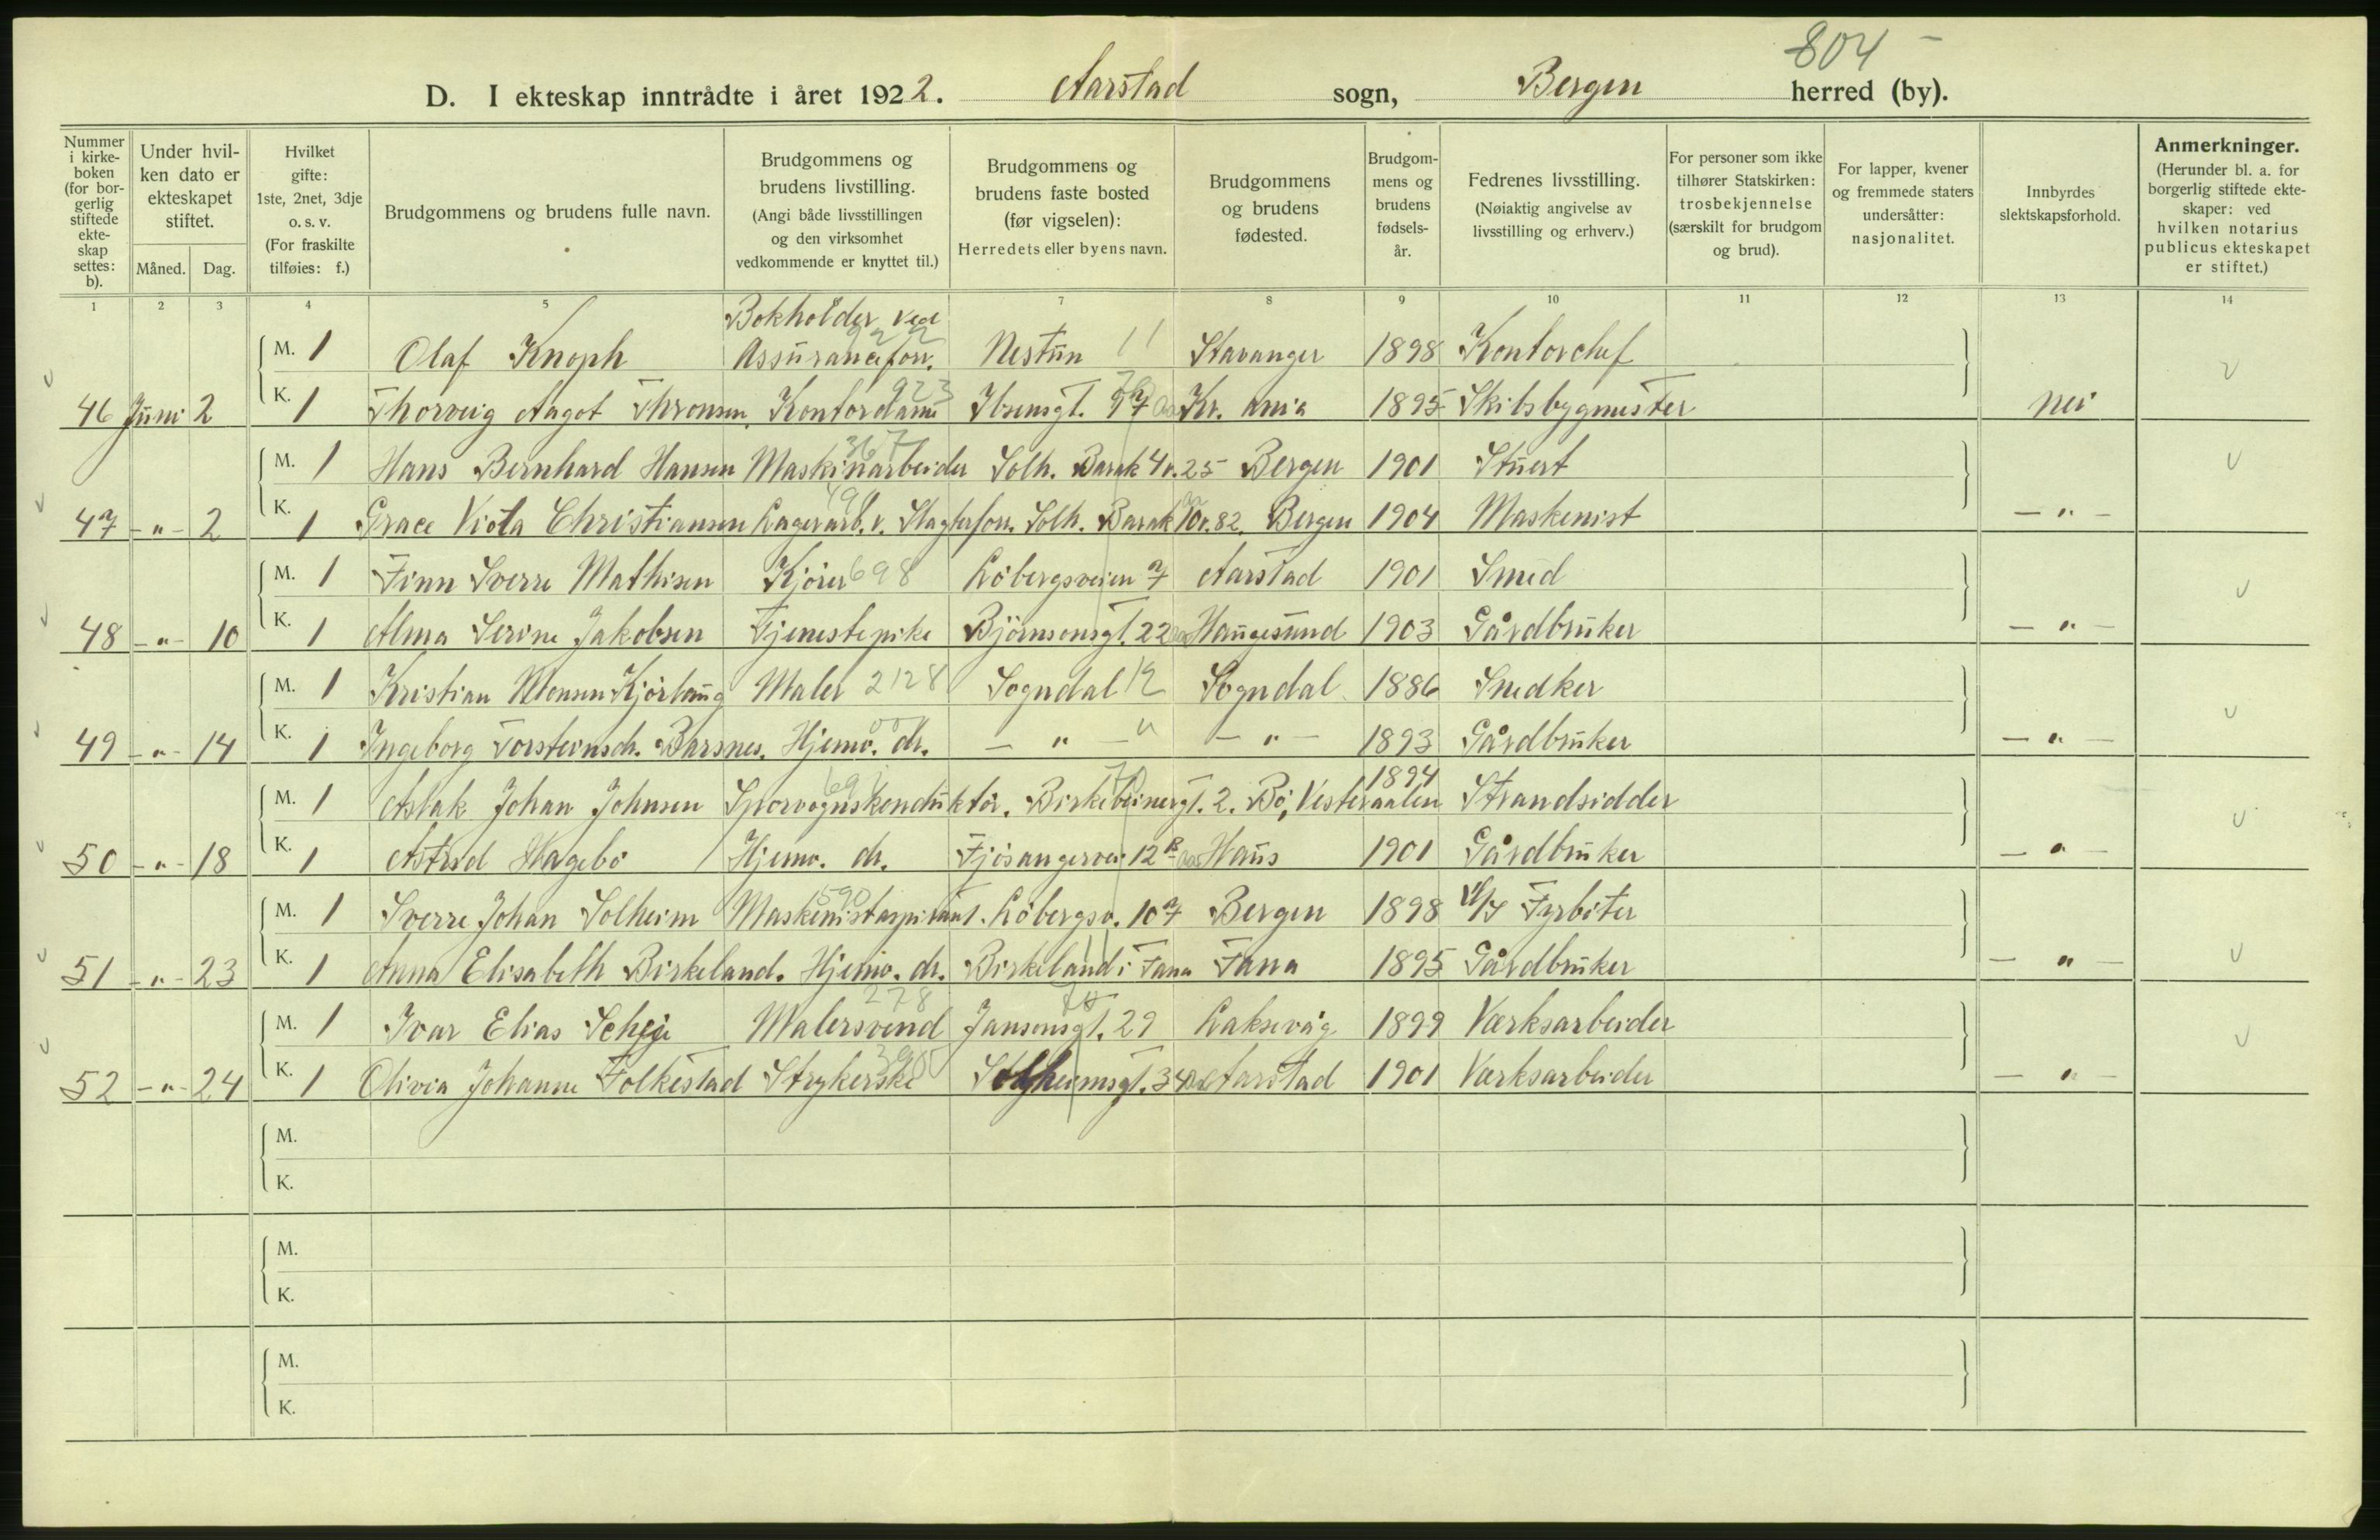 804 -
D. I ekteskap inntrådte i året 1922. Aarstad sogn, Bergen herred (by).
Nummer i kirkeboken (for borgerlig stiftede ekteskap settes: b).
Under hvilken dato er ekteskapet stiftet.
Måned. Dag.
Hvilket gifte: 1ste, 2net, 3dje o. s. v. (For fraskilte tilføies: f.)
Brudgommens og brudens fulle navn.
Brudgommens og brudens livstilling. (Angi både livsstillingen og den virksomhet vedkommende er knyttet til.)
Brudgommens og brudens faste bosted (før vigselen): Herredets eller byens navn.
Brudgommens og brudens fødested.
Brudgommens og brudens fødselsår.
Fedrenes livsstilling. (Nøiaktig angivelse av livsstilling og erhverv.)
For personer som ikke tilhører Statskirken: trosbekjennelse (særskilt for brudgom og brud).
For lapper, kvener og fremmede staters undersåtter: nasjonalitet.
Innbyrdes slektskapsforhold.
Anmerkninger. (Herunder bl. a. for borgerlig stiftede ekteskaper: ved hvilken notarius publicus ekteskapet er stiftet.)
1 2 3 4 5 7 8 9 10 11 12 13 14
M. 1 Olaf Knoph Bokholder ved Assuranceforr. 922 Nestün 11 Stavanger 1898 Kontorchef
46 Juni 2 K. 1 Thorveig Aagot Thronsen Kontordame 923 Ibsensgt. 97 Kr. ania 1895 Skibsbygmester nei
M. 1 Hans Bernhard Hansen Maskinarbeider 367 Solh. Barak 4v.25 Bergen 1901 Stuert
47 -"- 2 K. 1 Grace Viola Christiansen Lagerarb. v. Slagterforr. Solh. Barak 10v.82. Bergen 1904 Maskenist -"-
M. 1 Finn Sverre Mathisen Kjörer 698 Löbergsveien 7 Aarstad 1901 Smed
48 -"- 10 K. 1 Alma Serine Jakobsen Tjenestepike Björnsonsgt. 22 Haugesund 1903 Gårdbruker -"-
M. 1 Kristian Monsen Kjörlaug Maler 2128 Sogndal 12 Sogndal 1886 Snedker
49 -"- 14 K. 1 Ingeborg Torsteinsdr. Barsnes. Hjemv. dr. -"- -"- 1893 Gårdbruker -"-
M. 1 Aslak Johan Johnsen Sporvognskonduktör. Birkebeinergt. 2. Bö, Vesteraalen 1894 Strandsidder
50 -"- 18 K. 1 Astrid Hagebö Hjemv. dr. Fjösangervei 12B Haus 1901 Gårdbruker -"-
M. 1 Sverre Johan Solheim Maskenistaspirant. 590 Löbergsv. 107 Bergen 1898 Fyrböter
51 -"- 23 K. 1 Anna Elisabeth Birkeland. Hjemv. dr. Birkeland i Fana Fana 1895 Gårdbruker -"-
M. 1 Ivar Elias Scheje Malersvend 278 Jansonsgt. 29 Laksevåg 1899 Værksarbeider
52 -"- 24 K. 1 Olivia Johanne Folkestad Strykerske Solheimsgt. 34 Aarstad 1901 Værksarbeider -"-
M.
K.
M.
K.
M.
K.